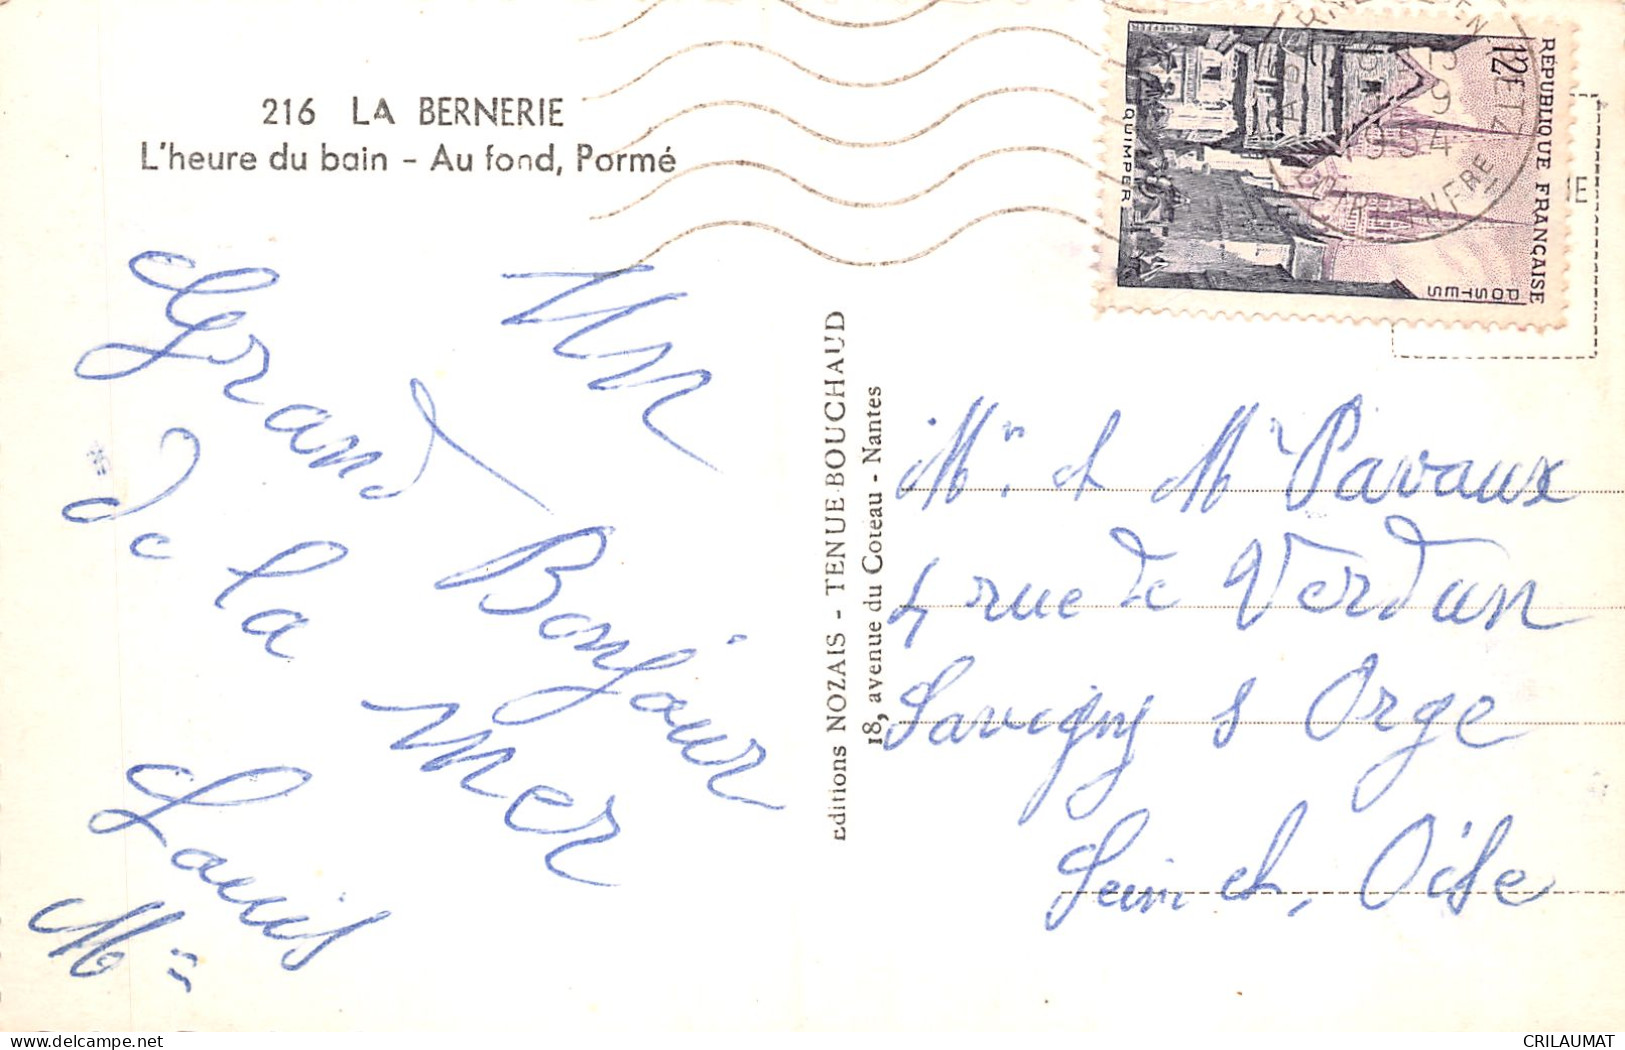 216 LA BERNERIE
L'heure du bain - Au fond, Pormé
Un
Grand Bonjour
de la mer
Louis
Mn
Editions NOZAIS - TENUE-BOUCHAUD
18, avenue du Coteau - Nantes
RÉPUBLIQUE FRANÇAISE
POSTES
12F
QUIMPER
1954
Mr. et Mr Pavaux
4 rue de Verdun
Savigny s Orge
Sein et, Oise
delcampe.net
CRILAUMAT